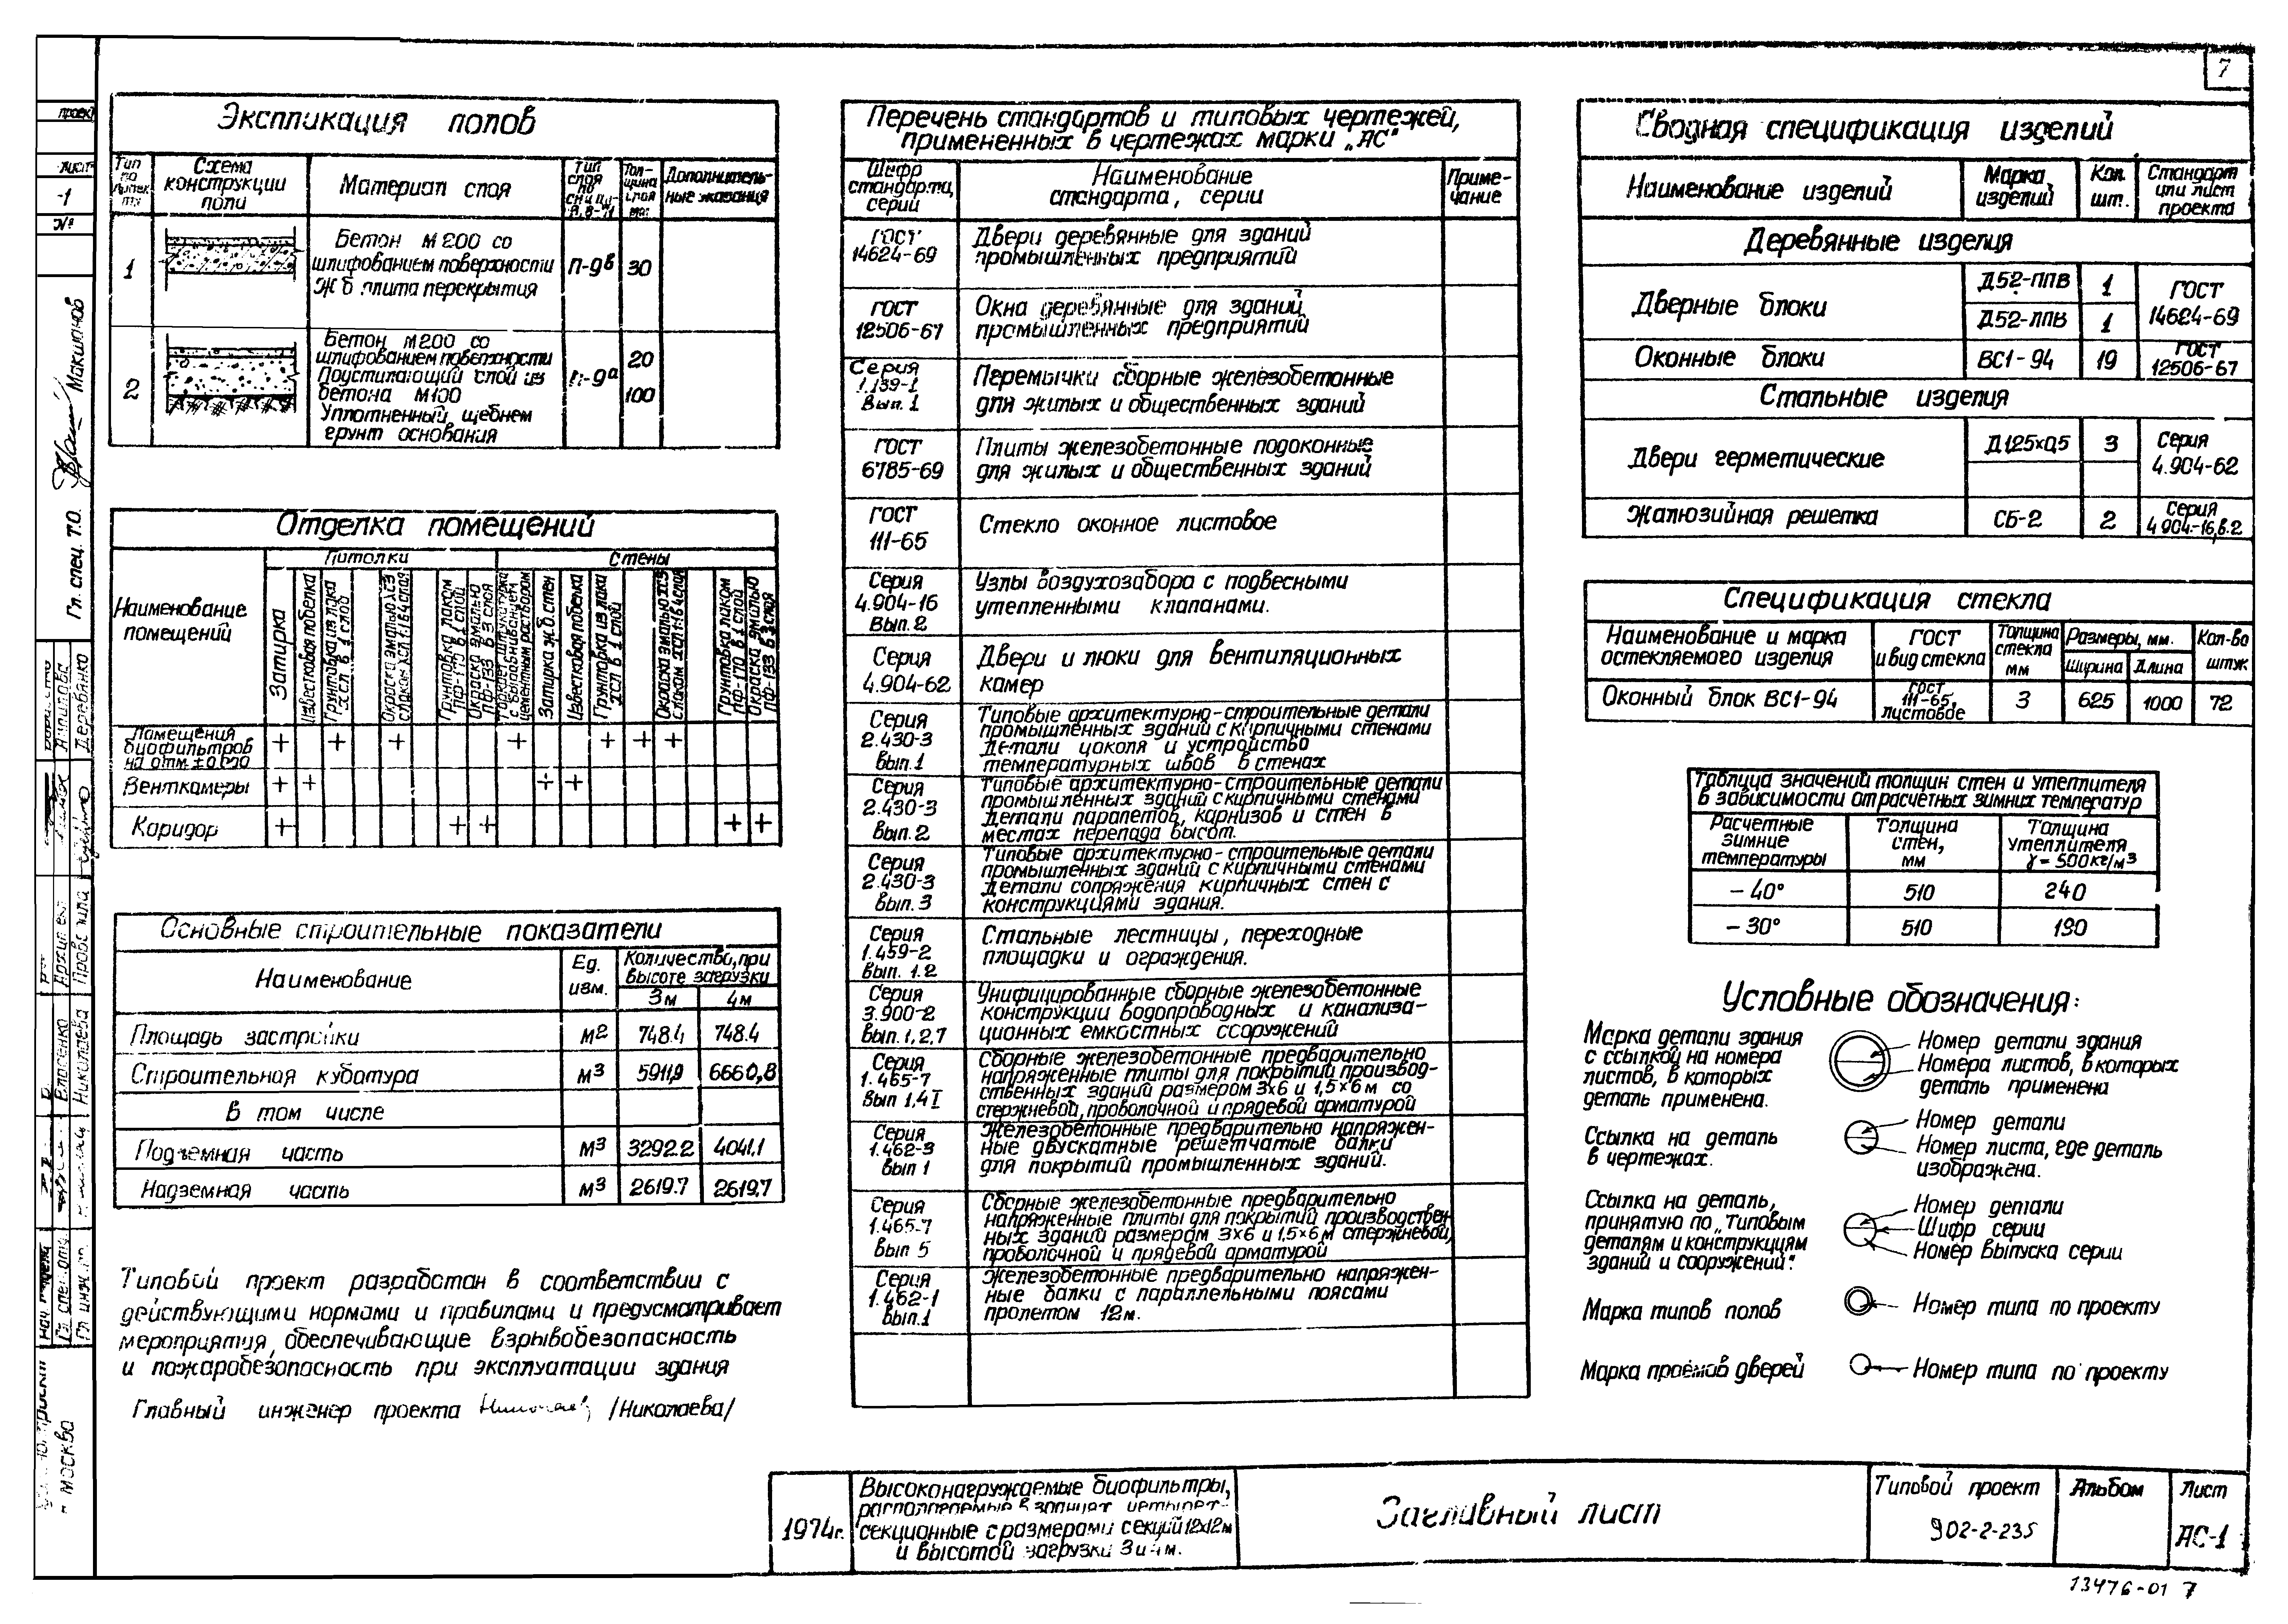 7
Экспликация полов
Тип по проекту
Схема конструкции пола
Материал слоя
Тип слоя по СНиП II-В.8-71
Толщина слоя мм
Дополнительные указания
1
Бетон М200 со
шлифованием поверхности
Ж б плита перекрытия
П-9в
30
2
Бетон М200 со
шлифованием поверхности
Подстилающий слой из
бетона М100
Уплотненный щебнем
грунт основания
П-9а
20
100
Отделка помещений
Наименование помещений
Потолки
Стены
Затирка
Известковая побелка
Грунтовка из лака ХСЛ в 1 слой
Окраска эмалью ХСЭ
Грунтовка лаком ПФ-170 в 1 слой
Окраска эмалью ПФ-133 в 3 слоя
цементным раствором
Затирка ж.б. стен
Известковая побелка
Грунтовка из лака ХСЛ в 1 слой
Окраска эмалью ХСЭ
Грунтовка лаком ПФ-170 в 1 слой
Окраска эмалью ПФ-133 в 3 слоя
Помещения биофильтров на отм. ±0.000 + + + + + + +
Венткамеры + + + +
Коридор + + + + +
Основные строительные показатели
Наименование
Ед. изм.
Количество, при высоте загрузки
3м 4м
Площадь застройки м2 748.4 748.4
Строительная кубатура м3 5911,9 6660,8
В том числе
Подземная часть м3 3292.2 4041.1
Надземная часть м3 2619.7 2619.7
Типовой проект разработан в соответствии с
действующими нормами и правилами и предусматривает
мероприятия, обеспечивающие взрывобезопасность
и пожаробезопасность при эксплуатации здания
Главный инженер проекта /Николаева/
Перечень стандартов и типовых чертежей,
примененных в чертежах марки „АС"
Шифр стандарта, серии
Наименование стандарта, серии
Примечание
ГОСТ 14624-69
Двери деревянные для зданий
промышленных предприятий
ГОСТ 12506-67
Окна деревянные для зданий
промышленных предприятий
Серия 1.139-1 Вып. 1
Перемычки сборные железобетонные
для жилых и общественных зданий
ГОСТ 6785-69
Плиты железобетонные подоконные
для жилых и общественных зданий
ГОСТ 111-65
Стекло оконное листовое
Серия 4.904-16 Вып. 2
Узлы воздухозабора с подвесными
утепленными клапанами.
Серия 4.904-62
Двери и люки для вентиляционных
камер
Серия 2.430-3 Вып.1
Типовые архитектурно-строительные детали
промышленных зданий с кирпичными стенами
Детали цоколя и устройство
температурных швов в стенах
Серия 2.430-3 Вып. 2
Типовые архитектурно-строительные детали
промышленных зданий с кирпичными стенами
Детали парапетов, карнизов и стен в
местах перепада высот.
Серия 2.430-3 Вып. 3
Типовые архитектурно-строительные детали
промышленных зданий с кирпичными стенами
Детали сопряжения кирпичных стен с
конструкциями здания.
Серия 1.459-2 Вып. 1.2
Стальные лестницы, переходные
площадки и ограждения.
Серия 3.900-2 Вып. 1,2,7
Унифицированные сборные железобетонные
конструкции водопроводных и канализа-
ционных емкостных сооружений
Серия 1.465-7 Вып 1,4I
Сборные железобетонные предварительно
напряженные плиты для покрытий производ-
ственных зданий размером 3х6 и 1,5х6м со
стержневой, проволочной и прядевой арматурой
Серия 1.462-3 Вып 1
Железобетонные предварительно напряжен-
ные двускатные решетчатые балки
для покрытий промышленных зданий.
Серия 1.465-7 Вып 5
Сборные железобетонные предварительно
напряженные плиты для покрытий производствен-
ных зданий размером 3х6 и 1,5х6м стержневой,
проволочной и прядевой арматурой
Серия 1.462-1 Вып.1
Железобетонные предварительно напряжен-
ные балки с параллельными поясами
пролетом 12м.
Сводная спецификация изделий
Наименование изделий
Марка изделий
Кол. шт.
Стандарт или лист проекта
Деревянные изделия
Дверные блоки
Д52-ППВ 1
Д52-ЛПВ 1
ГОСТ 14624-69
Оконные блоки ВС1-94 19 ГОСТ 12506-67
Стальные изделия
Двери герметические Д125х0,5 3 Серия 4.904-62
Жалюзийная решетка СБ-2 2 Серия 4.904-16, в.2
Спецификация стекла
Наименование и марка остекляемого изделия
ГОСТ и вид стекла
Толщина стекла мм
Размеры, мм.
Ширина Длина
Кол-во штук
Оконный блок ВС1-94 ГОСТ 111-65, листовое 3 625 1000 72
Таблица значений толщин стен и утеплителя
в зависимости от расчетных зимних температур
Расчетные зимние температуры
Толщина стен, мм
Толщина утеплителя γ=500кг/м3
-40° 510 240
-30° 510 190
Условные обозначения:
Марка детали здания
с ссылкой на номера
листов, в которых
деталь применена.
Номер детали здания
Номера листов, в которых
деталь применена
Ссылка на деталь
в чертежах.
Номер детали
Номер листа, где деталь
изображена.
Ссылка на деталь,
принятую по „Типовым
деталям и конструкциям
зданий и сооружений".
Номер детали
Шифр серии
Номер выпуска серии
Марка типов полов
Номер типа по проекту
Марка проёмов дверей
Номер типа по проекту
1974г.
Высоконагружаемые биофильтры,
располагаемые в зданиях четырех-
секционные с размерами секций 12х12м
и высотой загрузки 3 и 4м.
Заглавный лист
Типовой проект
902-2-235
Альбом
Лист
АС-1
13476-01 7
проект
Лист
-1
№
Гл. спец. Т.О.
Макшанов
Деревянко
Власенко
Николаева
Нач. отдела
Москва